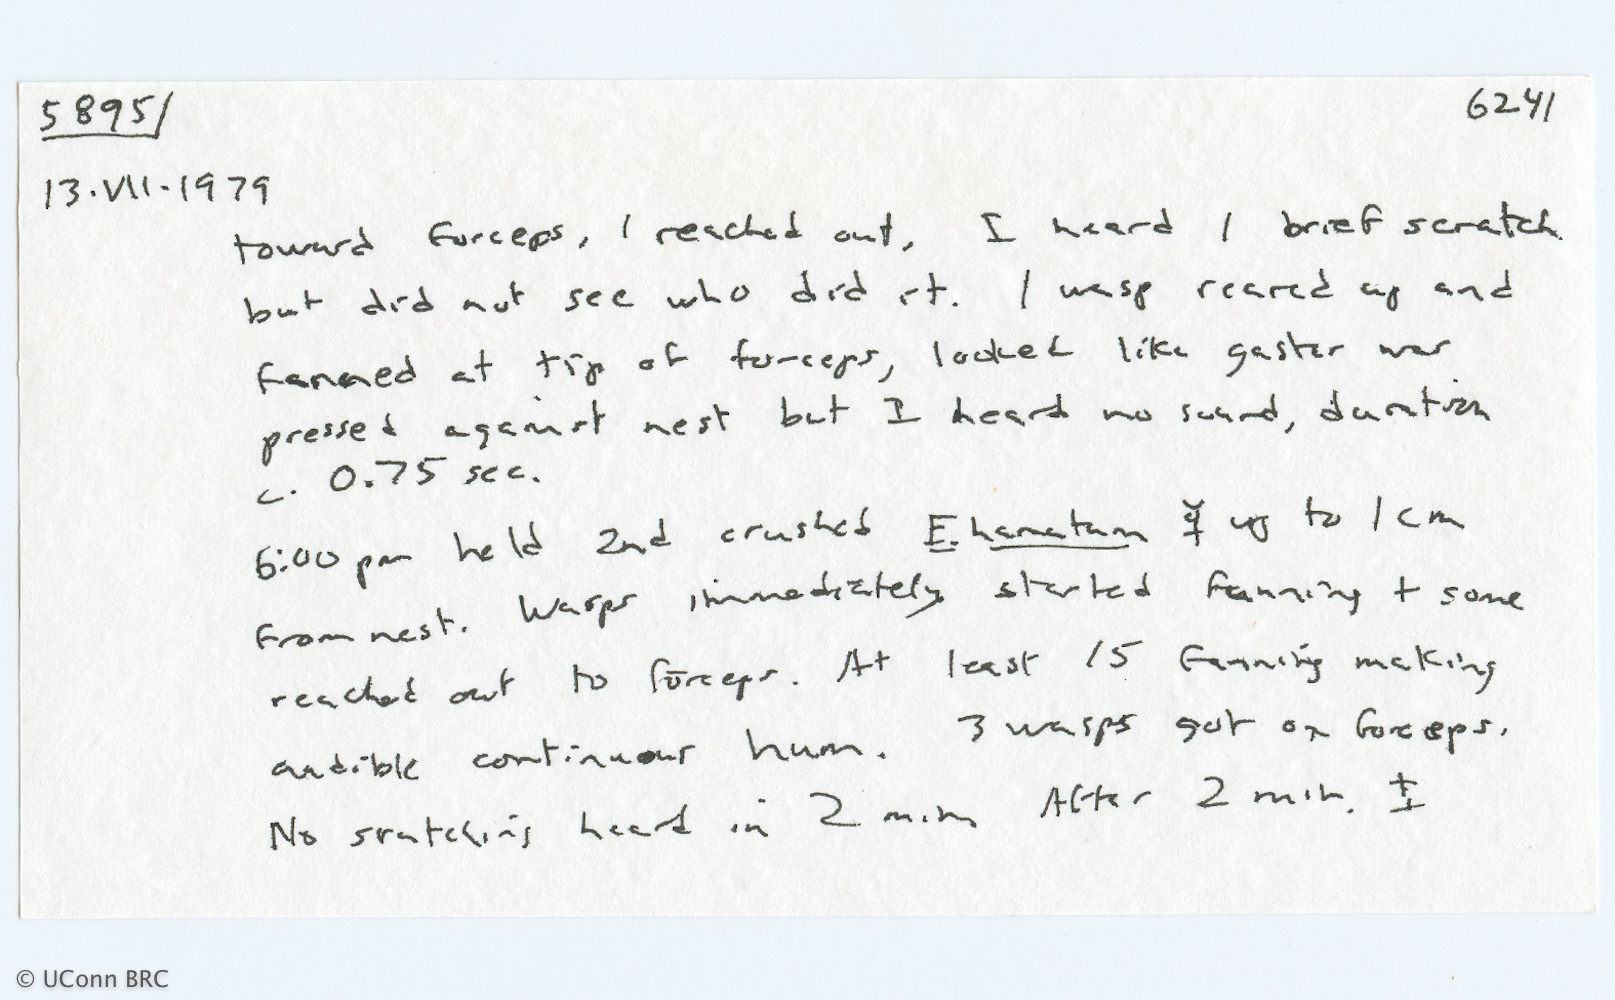 5895/ 6241
13.VII.1979
toward forceps, 1 reached out, I heard 1 brief scratch
but did not see who did it. 1 wasp reared up and
fanned at tip of forceps, looked like gaster was
pressed against nest but I heard no sound, duration
c. 0.75 sec.
6:00 pm held 2nd crushed E. hamatum ☿ up to 1 cm
from nest. Wasps immediately started fanning + some
reached out to forceps. At least 15 fanning making
audible continuous hum. 3 wasps got on forceps.
No scratching heard in 2 min. After 2 min. I
© UConn BRC